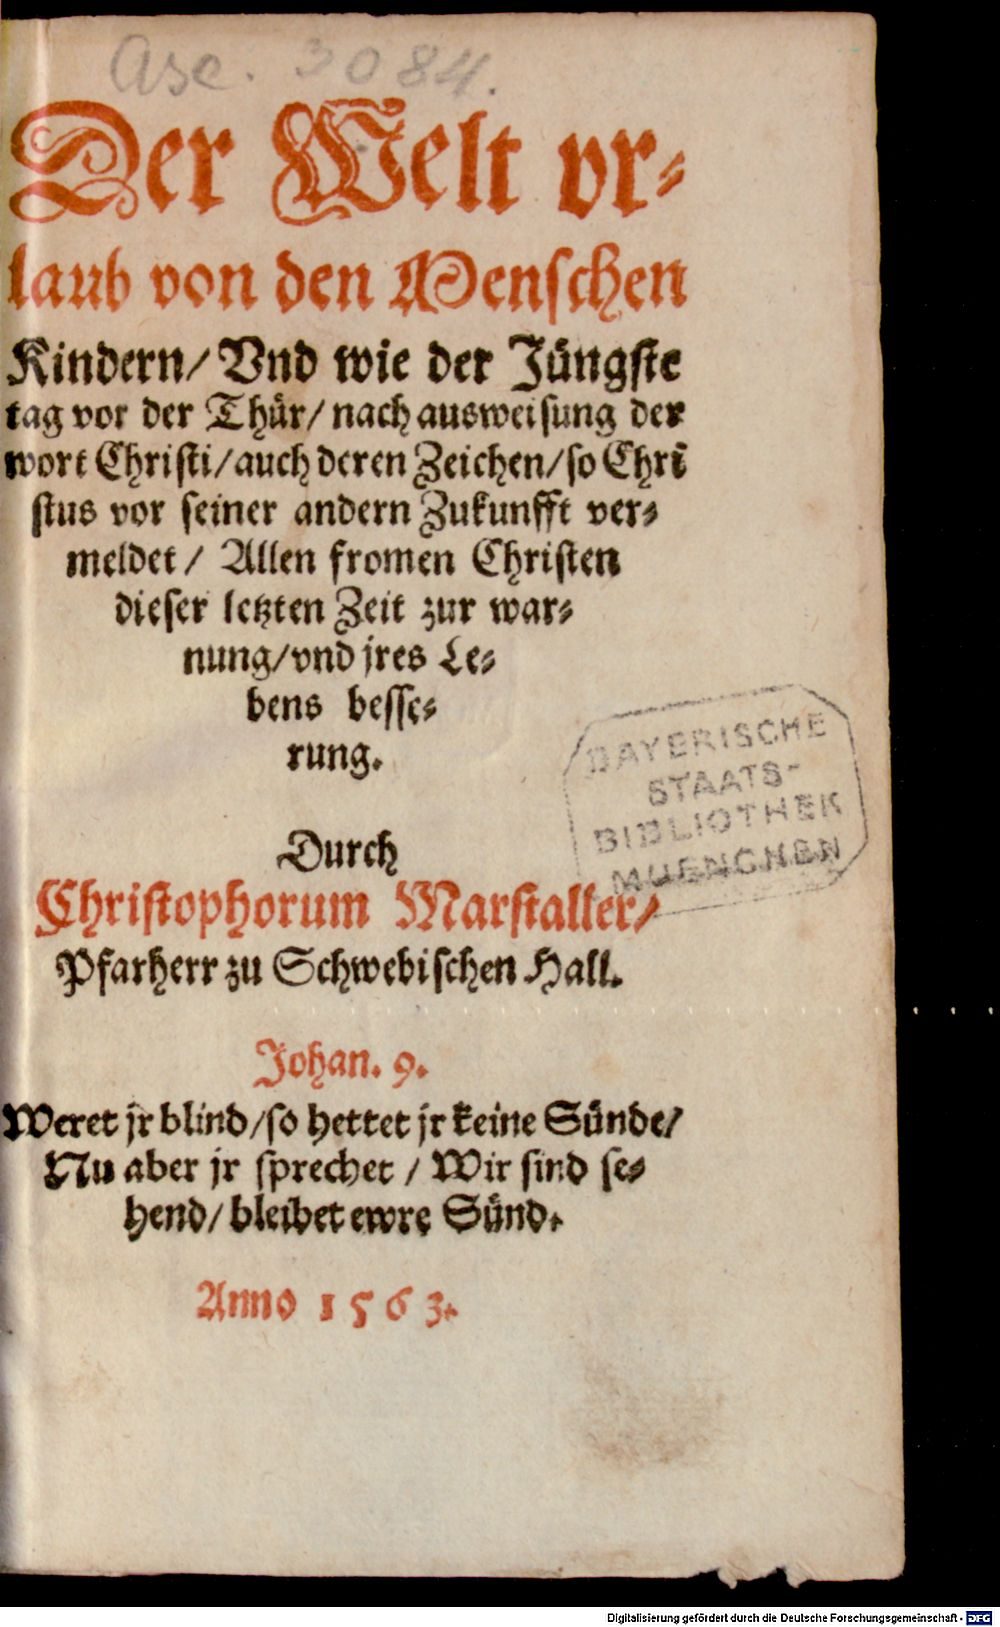 Asc. 3084.
Der Welt vr⸗
laub von den Menschen
Kindern/ Vnd wie der Jüngste
tag vor der Thür/ nach ausweisung der
wort Christi/ auch deren Zeichen/ so Chri
stus vor seiner andern Zukunfft ver⸗
meldet/ Allen fromen Christen
dieser letzten Zeit zur war⸗
nung/ vnd jres Le⸗
bens besse⸗
rung.
BAYERISCHE
STAATS-
BIBLIOTHEK
MUENCHEN
Durch
Christophorum Marstaller/
Pfarherr zu Schwebischen Hall.
Johan. 9.
Weret jr blind/ so hettet jr keine Sünde/
Nu aber jr sprechet/ Wir sind se⸗
hend/ bleibet ewre Sünd.
Anno 1563.
Digitalisierung gefördert durch die Deutsche Forschungsgemeinschaft - DFG